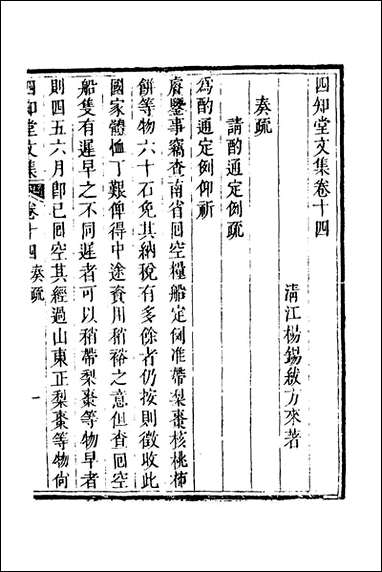 四知堂文集卷十四
清江楊錫紱方來著
奏疏
請酌通定例疏
爲酌通定例仰祈
睿鑒事竊查南省回空糧船定例准帶梨棗核桃柿
餅等物六十石免其納稅有多餘者仍按則徵收此
國家體恤丁艱俾得中途資用稍裕之意但查回空
船隻有遲早之不同遲者可以稍帶梨棗等物早者
則四五六月即已回空其經過山東正梨棗等物尙
四知堂文集 卷十四 奏疏 一